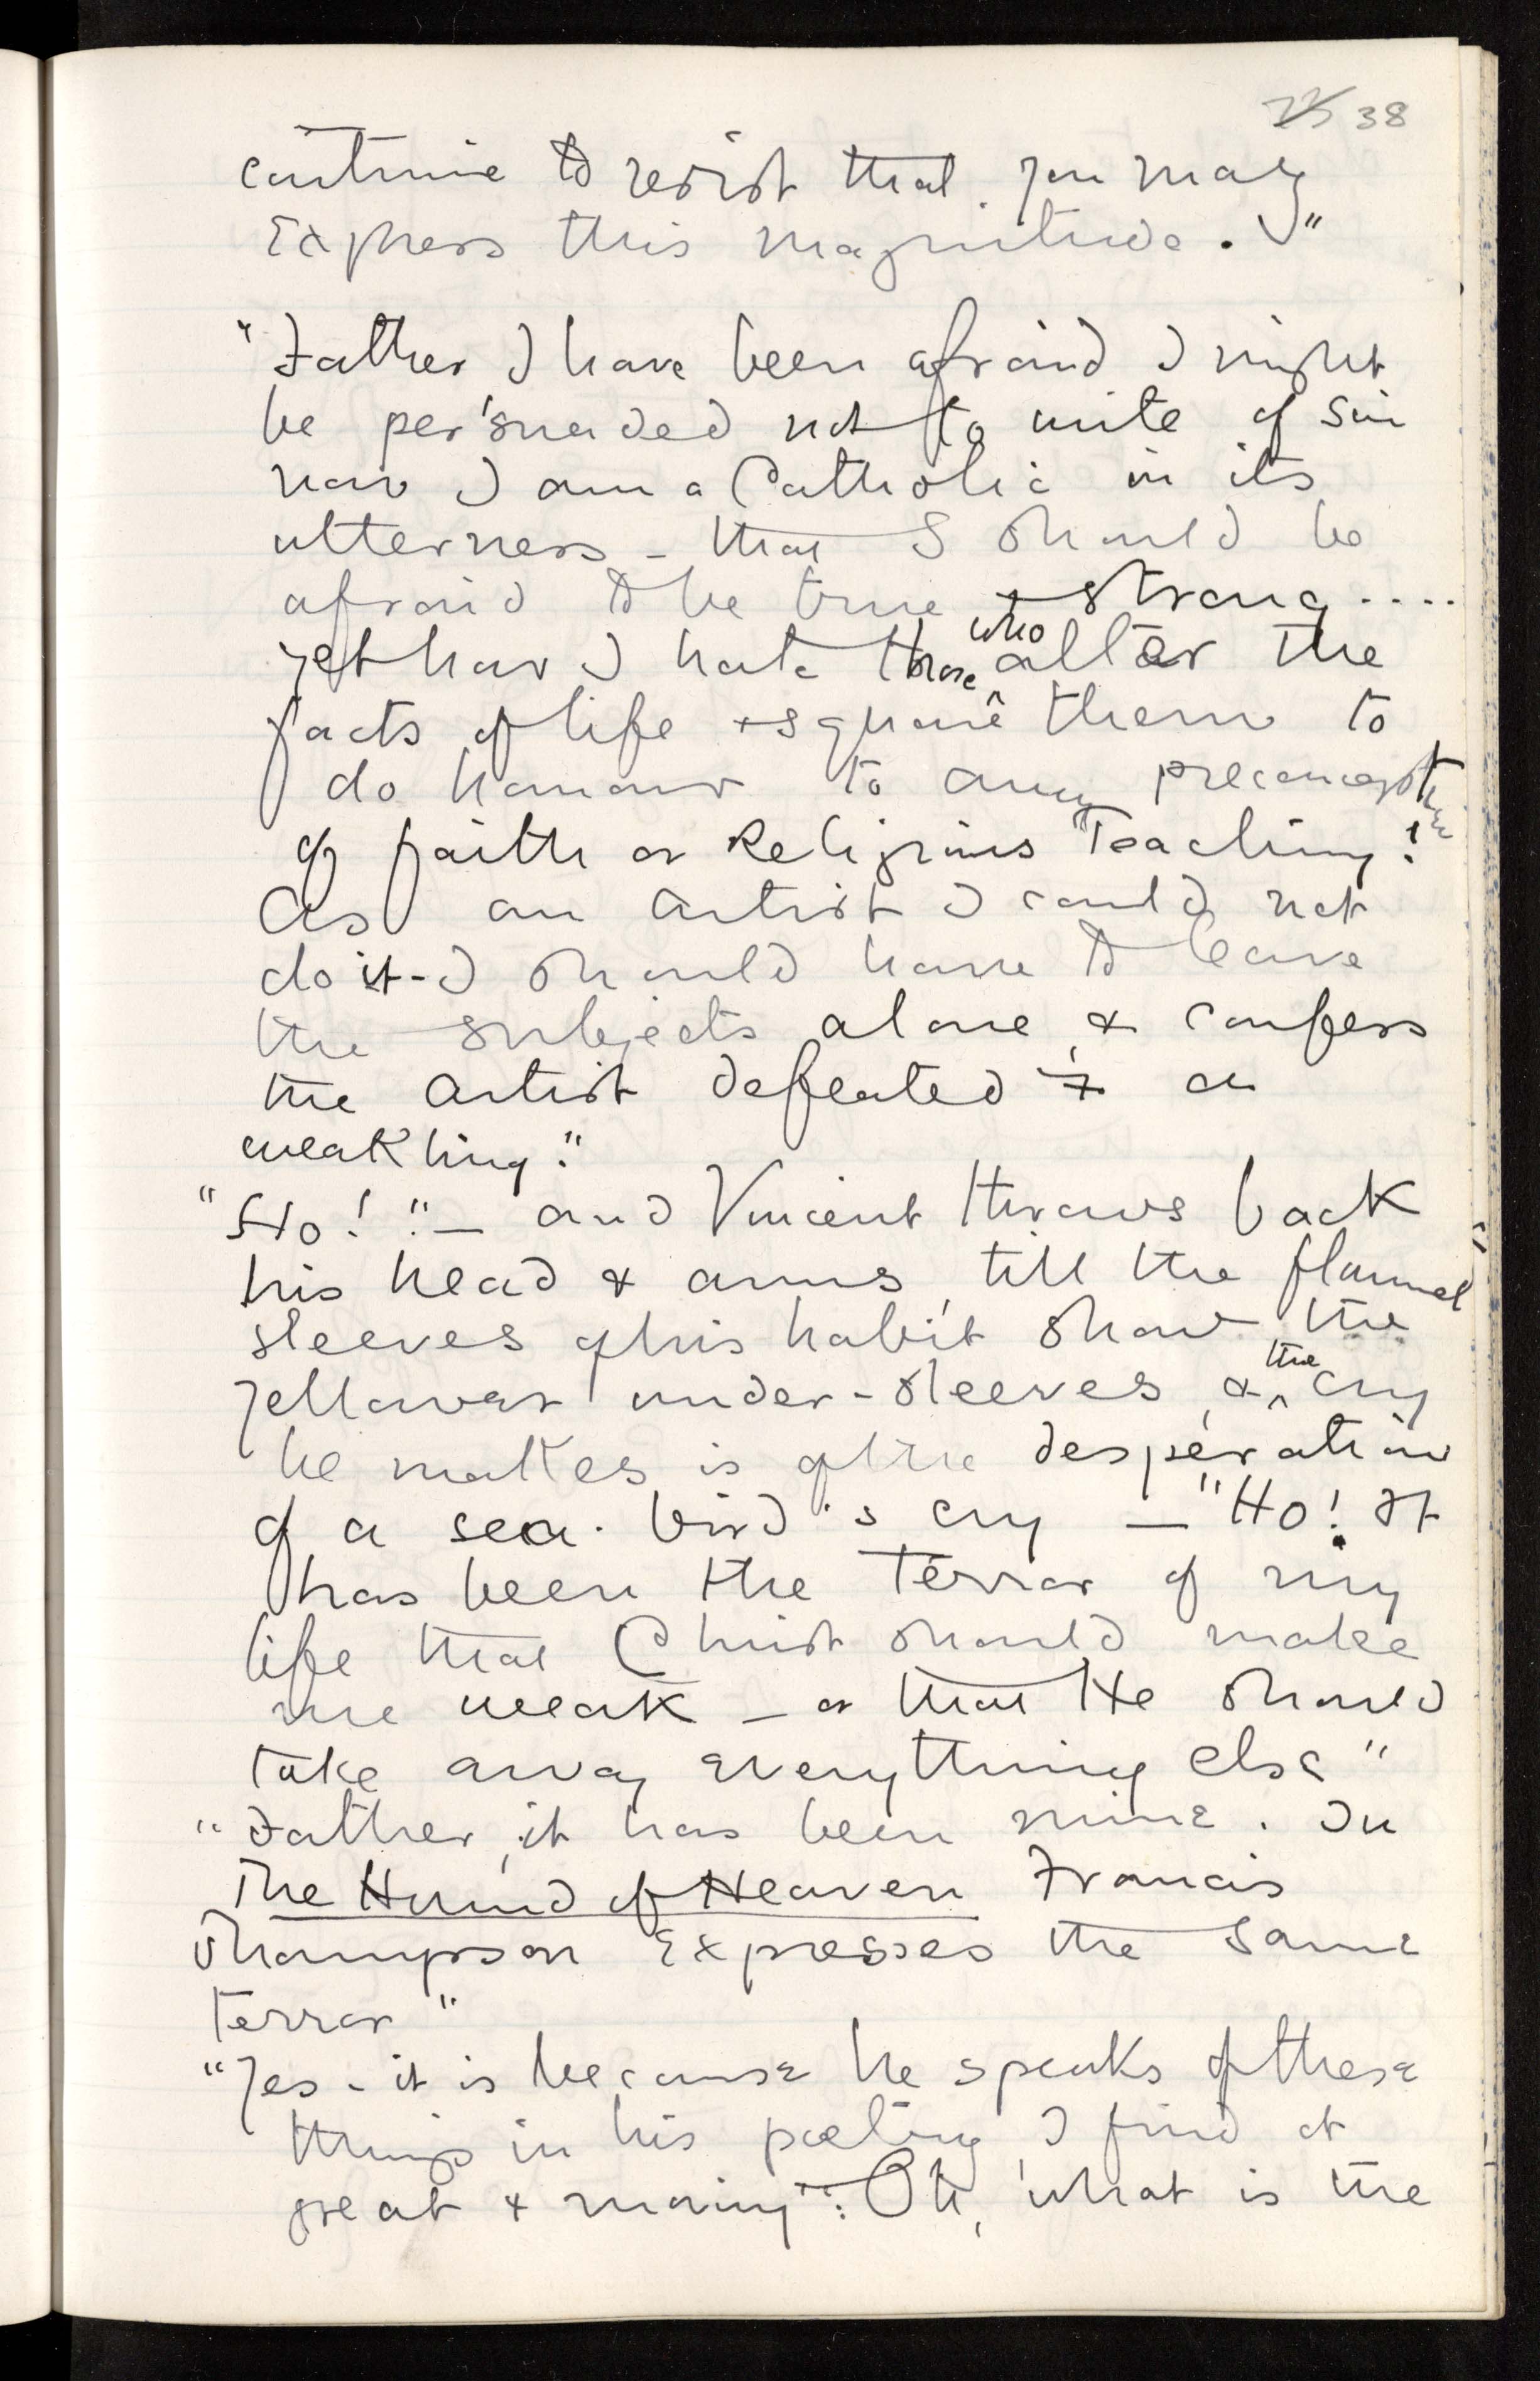 38
continue to resist that you may
express this magnitude."
"Father I have been afraid I might
be persuaded not to write of sin
now I am a Catholic in its
utterness - that I should be
afraid to be true & strong ....
yet how I hate those who alter the
facts of life & square them to
do honour to any preconception
of faith or Religious Teaching!
As an artist I could not
do it - I should have to leave
the subjects alone, & confess
the artist defeated & a
weakling."
"Ho!" — and Vincent throws back
his head & arms, till the flannel
sleeves of his habit show the
yellower under-sleeves, & the cry
he makes is of the desperation
of a sea-bird's cry — "Ho! It
has been the terror of my
life that Christ should make
me weak — or that He should
take away everything else"
"Father, it has been mine. In
The Hound of Heaven Francis
Thompson expresses the same
terror"
"Yes - it is because he speaks of these
things in his poetry I find it
great & moving": Oh, what is the